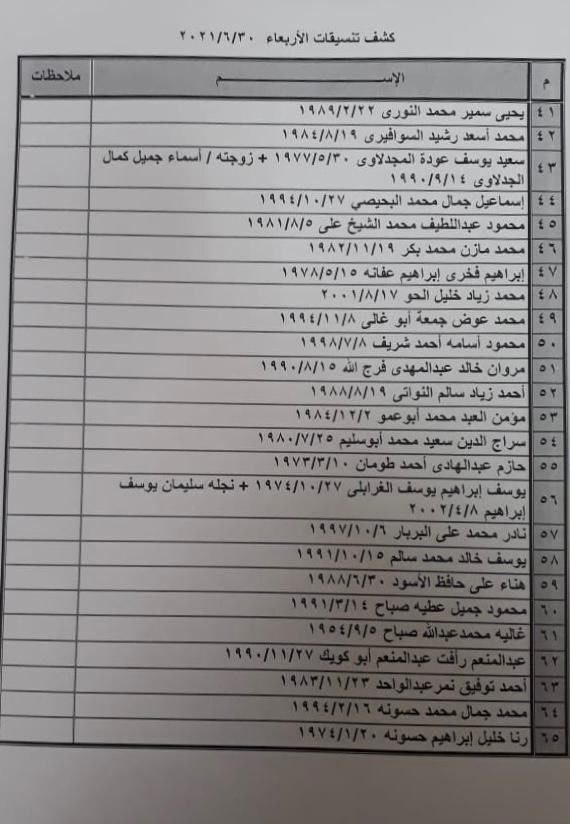 كشف تنسيقات الأربعاء ٢٠٢١/٦/٣٠
م الإســـــم ملاحظات
٤١ يحيى سمير محمد النورى ١٩٨٩/٢/٢٢
٤٢ محمد أسعد رشيد السوافيرى ١٩٨٤/٨/١٩
٤٣ سعيد يوسف عودة المجدلاوى ١٩٧٧/٥/٣٠ + زوجته / أسماء جميل كمال
الجدلاوى ١٩٩٠/٩/١٤
٤٤ إسماعيل جمال محمد البحيصي ١٩٩٤/١٠/٢٧
٤٥ محمود عبداللطيف محمد الشيخ على ١٩٨١/٨/٥
٤٦ محمد مازن محمد بكر ١٩٨٢/١١/١٩
٤٧ إبراهيم فخرى إبراهيم عفانه ١٩٧٨/٥/١٥
٤٨ محمد زياد خليل الحو ٢٠٠١/٨/١٧
٤٩ محمد عوض جمعة أبو غالى ١٩٩٤/١١/٨
٥٠ محمود أسامه أحمد شريف ١٩٩٨/٧/٨
٥١ مروان خالد عبدالمهدى فرج الله ١٩٩٠/٨/١٥
٥٢ أحمد زياد سالم النواتى ١٩٨٨/٨/١٩
٥٣ مؤمن العبد محمد أبوعمو ١٩٨٤/١٢/٢
٥٤ سراج الدين سعيد محمد أبوسليم ١٩٨٠/٧/٢٥
٥٥ حازم عبدالهادى أحمد طومان ١٩٧٣/٣/١٠
٥٦ يوسف إبراهيم يوسف الغرابلى ١٩٧٤/١٠/٢٧ + نجله سليمان يوسف
إبراهيم ٢٠٠٢/٤/٨
٥٧ نادر محمد على البربار ١٩٩٧/١٠/٦
٥٨ يوسف خالد محمد سالم ١٩٩١/١٠/١٥
٥٩ هناء على حافظ الأسود ١٩٨٨/٦/٣٠
٦٠ محمود جميل عطيه صباح ١٩٩١/٣/١٤
٦١ غاليه محمدعبدالله صباح ١٩٥٤/٩/٥
٦٢ عبدالمنعم رأفت عبدالمنعم أبو كويك ١٩٩٠/١١/٢٧
٦٣ أحمد توفيق نمرعبدالواحد ١٩٨٣/١١/٢٣
٦٤ محمد جمال محمد حسونه ١٩٩٤/٢/١٦
٦٥ رنا خليل إبراهيم حسونه ١٩٧٤/١/٢٠